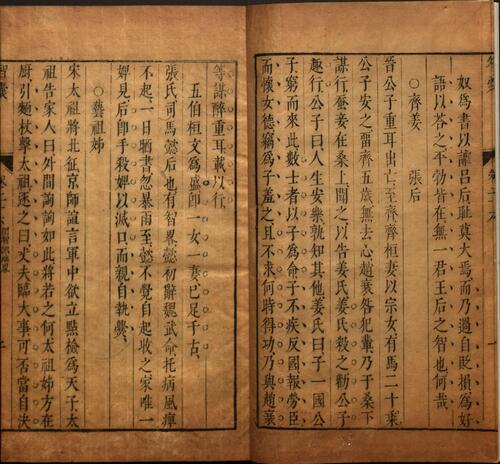 奴爲書以謔呂后耻莫大焉而乃過自貶損爲好
語以荅之不勃皆在無一君王后之智也何哉
○齊姜　張后
晉公子重耳出亡至齊齊桓妻以宗女有馬二十乗
公子安之畱齊五歲無去心趙衰咎犯輩乃于桑下
謀行蚕妾在桑上聞之以告姜氏姜氏殺之勸公子
趣行公子曰人生安樂孰知其他姜氏曰子一國公
子窮而來此數士者以子爲命子不疾反國報勞臣
而懷女德竊爲子羞之且不求何時得功乃與趙衰
等謀醉重耳載以行
五伯桓文爲盛卽一女一妻已足千古
張氏司馬懿后也有智畧懿初辭魏武命托病風痺
不起一日晒書忽暴雨至懿不覺自起收之家唯一
婢見后卽手殺婢以滅口而親自執爨
○藝祖姊
宋太祖將北征京師諠言軍中欲立點檢爲天子太
祖告家人曰外間詾詾如此將若之何太祖姊方在
廚引麵杖擊太祖逐之曰丈夫臨大事可否當自決
智囊